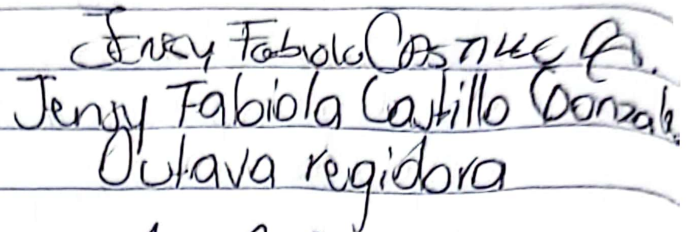 Jensy Fabiola Castillo G.
Jensy Fabiola Castillo Gonzale
Octava regidora